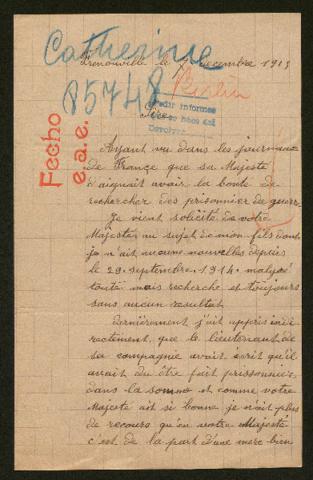 Catherine
Frenouville le 7 Decembre 1915
85748
Berlin
Pedir informes
Devolver
Sire
Fecho
e.a.e.
Ayant vu dans les journaux
de France que sa Majesté
d'aignait avoir la bonté de
rechercher des prisonnier de guerre
Je vient solicité de votre
Majestée au sujet de mon fils dont
je n'ait aucune nouvelles depuis
le 29 septembre 1914 malgré
toute mais recherche et toujours
sans aucun resultat
dernièrement j'ait appris indi
rectement, que le lieutenant de
sa compagnie avait écrit qu'il
aurait du être fait prissonnier
dans la somme et comme votre
Majesté ait si bonne je n'ait plus
de recours qu'en votre Majesté
c'est de la part d'une mère bien